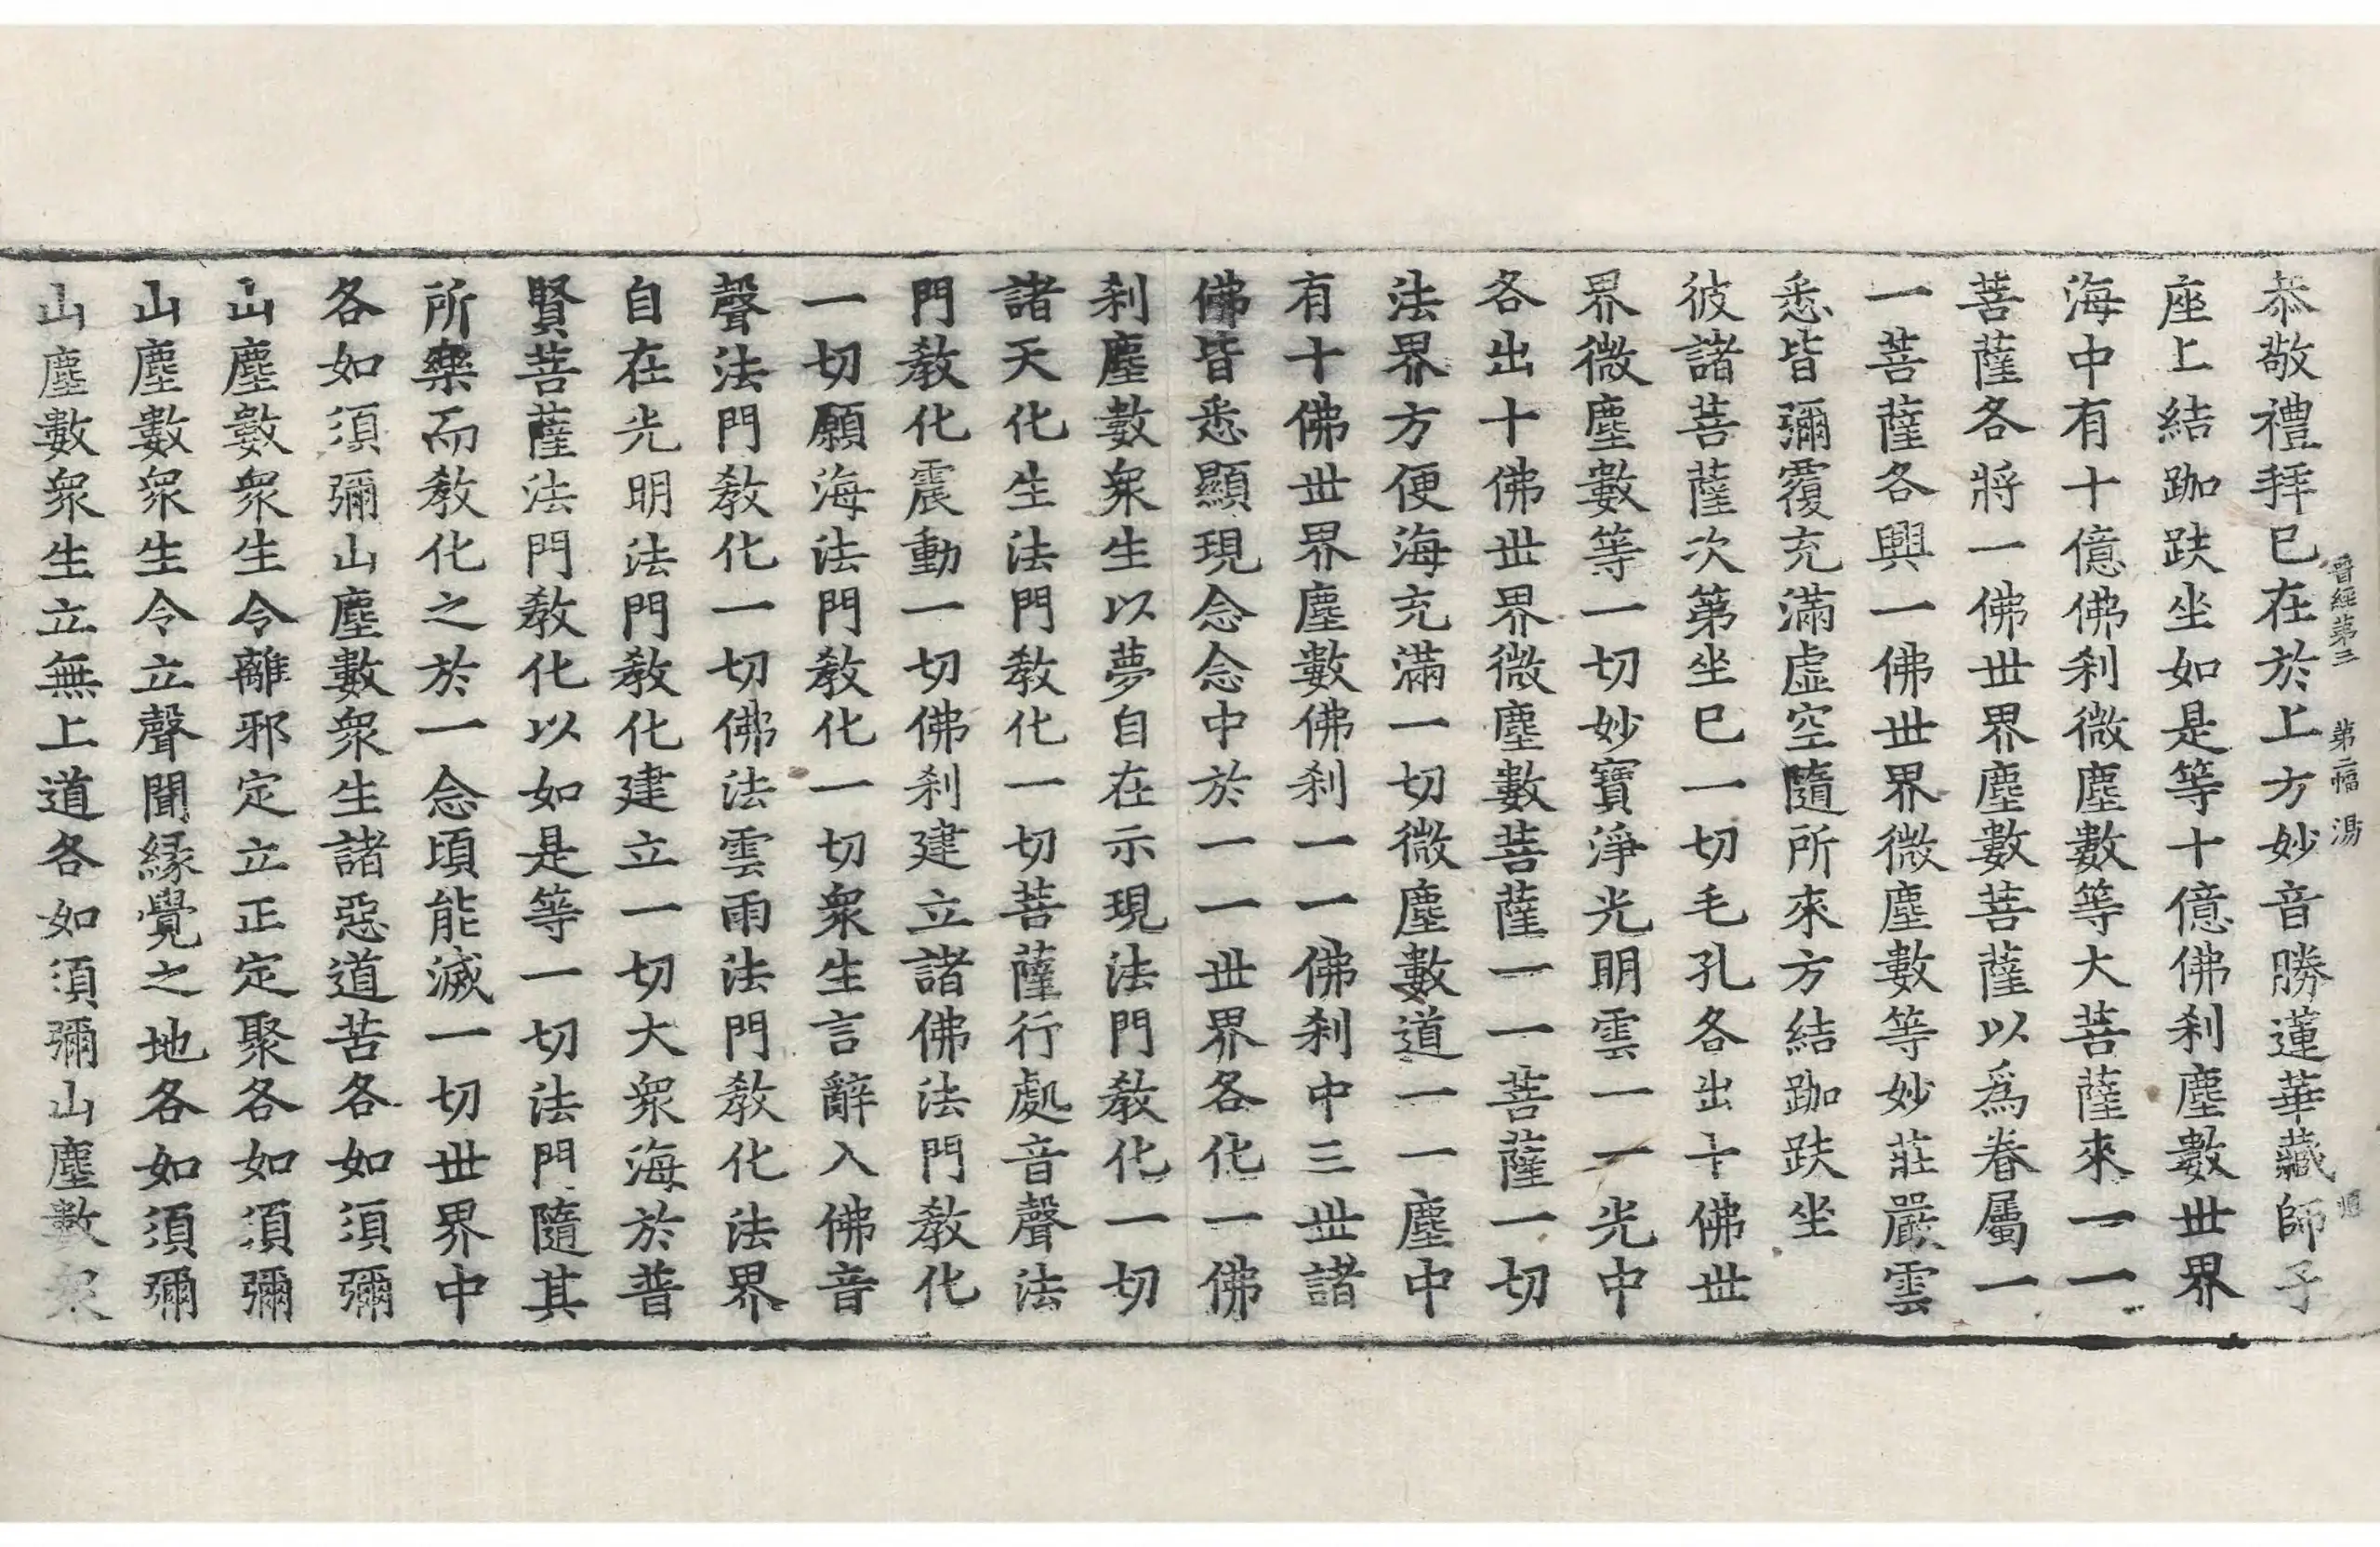 恭敬禮拜已在於上方妙音勝蓮華藏師子
晋經第三　第二幅　湯
座上結跏趺坐如是等十億佛刹塵數世界
海中有十億佛刹微塵數等大菩薩來一一
菩薩各將一佛世界塵數菩薩以為眷屬一
一菩薩各興一佛世界微塵數等妙莊嚴雲
悉皆彌覆充滿虛空隨所來方結跏趺坐
彼諸菩薩次第坐已一切毛孔各出十佛世
界微塵數等一切妙寶淨光明雲一一光中
各出十佛世界微塵數菩薩一一菩薩一切
法界方便海充滿一切微塵數道一一塵中
有十佛世界塵數佛刹一一佛刹中三世諸
佛皆悉顯現念念中於一一世界各化一佛
刹塵數衆生以夢自在示現法門教化一切
諸天化生法門教化一切菩薩行處音聲法
門教化震動一切佛刹建立諸佛法門教化
一切願海法門教化一切衆生言辭入佛音
聲法門教化一切佛法雲雨法門教化法界
自在光明法門教化建立一切大衆海於普
賢菩薩法門教化以如是等一切法門隨其
所樂而教化之於一念頃能滅一切世界中
各如須彌山塵數衆生諸惡道苦各如須彌
山塵數衆生令離邪定立正定聚各如須彌
山塵數衆生令立聲聞緣覺之地各如須彌
山塵數衆生立無上道各如須彌山塵數衆